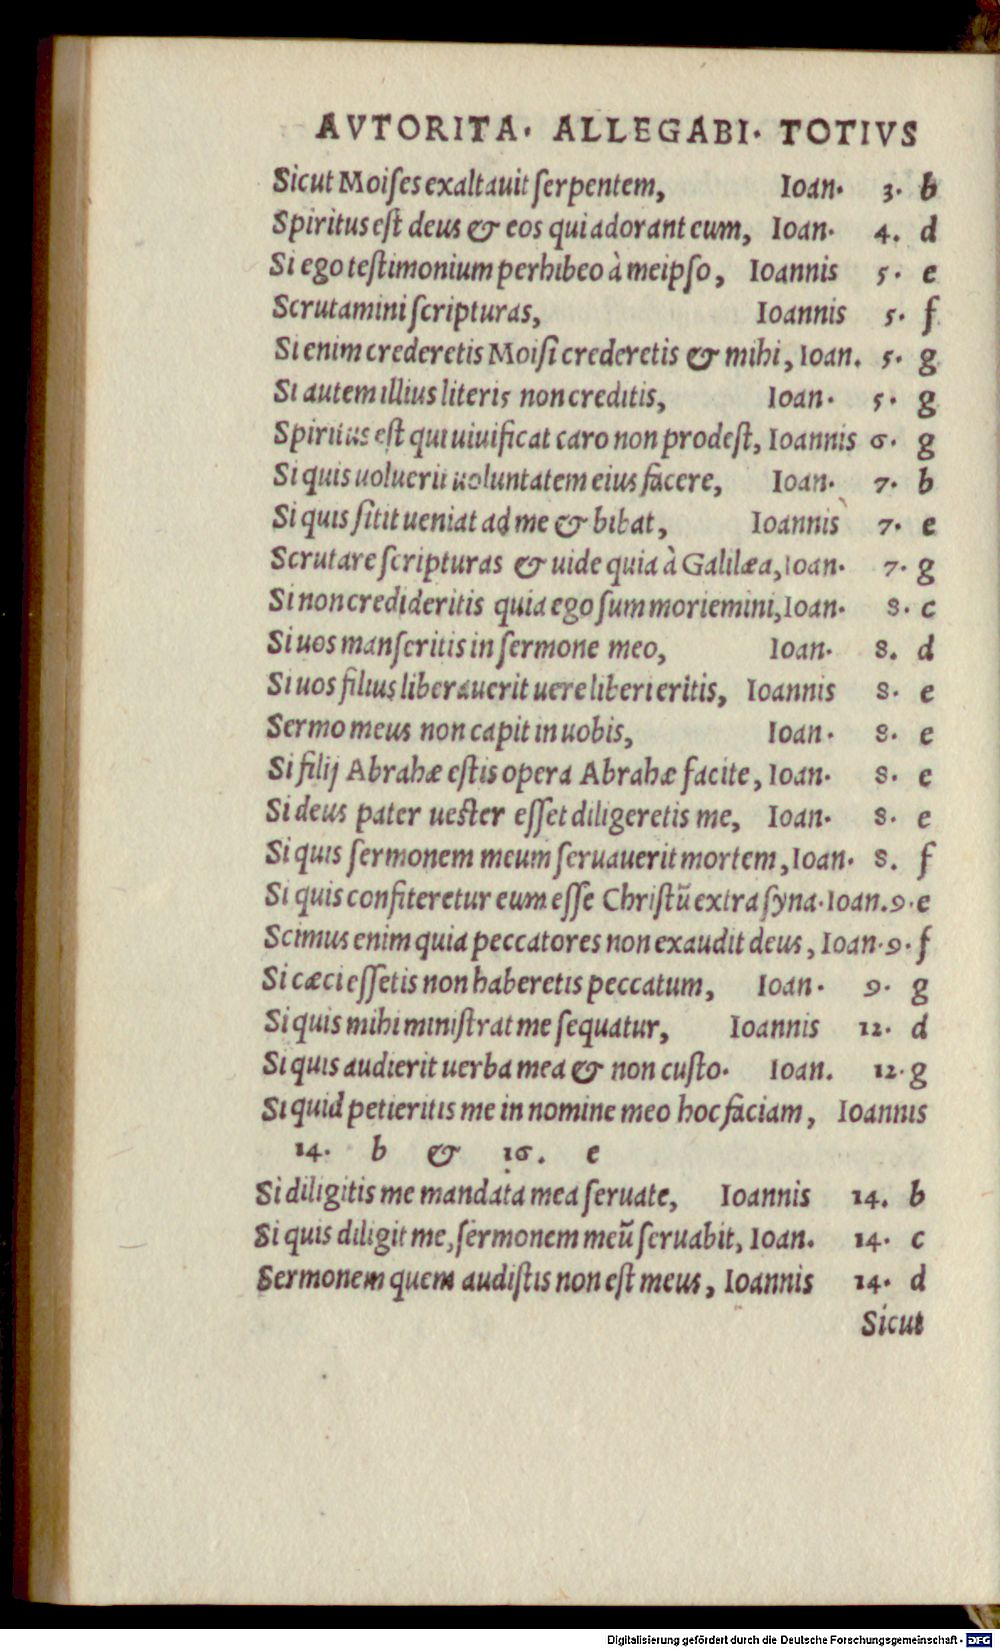 AVTORITA. ALLEGABI. TOTIVS
Sicut Moiſes exaltauit ſerpentem, Ioan. 3. b
Spiritus eſt deus & eos qui adorant eum, Ioan. 4. d
Si ego teſtimonium perhibeo à meipſo, Ioannis 5. e
Scrutamini ſcripturas, Ioannis 5. f
Si enim crederetis Moiſi crederetis & mihi, Ioan. 5. g
Si autem illius literis non creditis, Ioan. 5. g
Spiritus eſt qui uiuificat caro non prodeſt, Ioannis 6. g
Si quis uoluerit uoluntatem eius facere, Ioan. 7. b
Si quis ſitit ueniat ad me & bibat, Ioannis 7. e
Scrutare ſcripturas & uide quia à Galilæa, Ioan. 7. g
Si non credideritis quia ego ſum moriemini, Ioan. 8. c
Si uos manſeritis in ſermone meo, Ioan. 8. d
Si uos filius liberauerit uere liberi eritis, Ioannis 8. e
Sermo meus non capit in uobis, Ioan. 8. e
Si filij Abrahæ eſtis opera Abrahæ facite, Ioan. 8. e
Si deus pater ueſter eſſet diligeretis me, Ioan. 8. e
Si quis ſermonem meum ſeruauerit mortem, Ioan. 8. f
Si quis confiteretur eum eſſe Chriſtũ extra ſyna. Ioan. 9. e
Scimus enim quia peccatores non exaudit deus, Ioan. 9. f
Si cæci eſſetis non haberetis peccatum, Ioan. 9. g
Si quis mihi miniſtrat me ſequatur, Ioannis 12. d
Si quis audierit uerba mea & non cuſto. Ioan. 12. g
Si quid petieritis me in nomine meo hoc faciam, Ioannis
14. b & 16. e
Si diligitis me mandata mea ſeruate, Ioannis 14. b
Si quis diligit me, ſermonem meũ ſeruabit, Ioan. 14. c
Sermonem quem audiſtis non eſt meus, Ioannis 14. d
Sicut
Digitalisierung gefördert durch die Deutsche Forschungsgemeinschaft - DFG